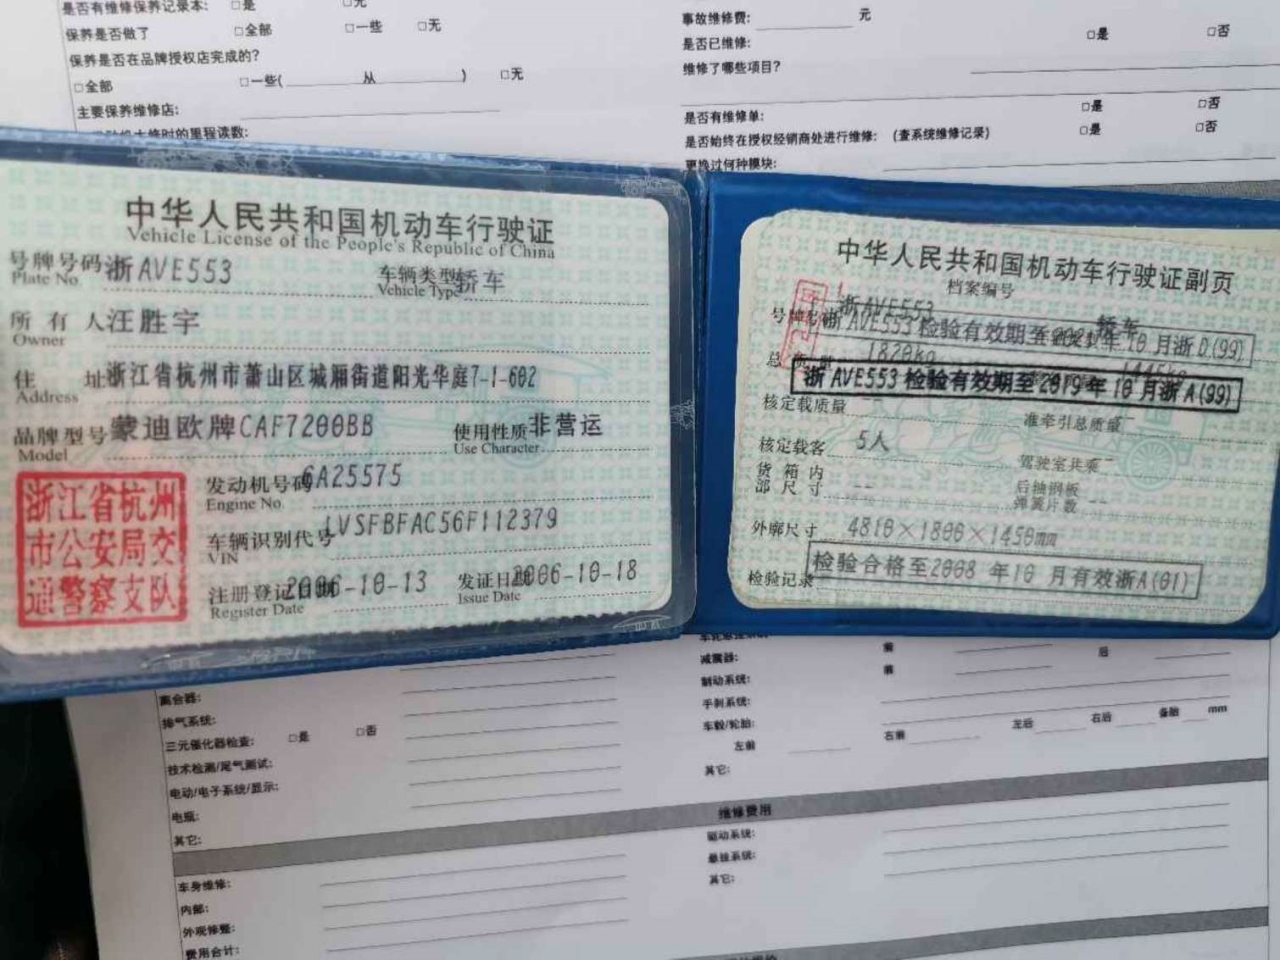 是否有维修保养记录本: □是 □无
保养是否做了 □全部 □一些 □无
保养是否在品牌授权店完成的?
□全部 □一些( 从 ) □无
主要保养维修店:
大修时的里程读数:
事故维修费: 元
是否已维修: □是 □否
维修了哪些项目?
是否有维修单: □是 □否
是否始终在授权经销商处进行维修: (查系统维修记录) □是 □否
更换过何种模块:
中华人民共和国机动车行驶证
Vehicle License of the People's Republic of China
号牌号码 浙AVE553 车辆类型 轿车
Plate No. Vehicle Type
所有人 汪胜宇
Owner
住址 浙江省杭州市萧山区城厢街道阳光华庭7-1-602
Address
品牌型号 蒙迪欧牌CAF7200BB 使用性质 非营运
Model Use Character
发动机号码 6A25575
Engine No.
车辆识别代号 LVSFBFAC56F112379
VIN
注册登记日期 2006-10-13 发证日期 2006-10-18
Register Date Issue Date
浙江省杭州
市公安局交
通警察支队
中华人民共和国机动车行驶证副页
档案编号
号牌号码 浙AVE553 轿车
浙AVE553检验有效期至 年10月浙D(99)
总质量 1820kg
浙AVE553检验有效期至2019年10月浙A(99)
核定载质量 -- 准牵引总质量
核定载客 5人 驾驶室共乘
货箱内部尺寸 -- 后轴钢板弹簧片数 --
外廓尺寸 4810×1800×1450mm
检验记录 检验合格至2008年10月有效浙A(01)
离合器:
排气系统:
三元催化器检查: □是 □否
技术检测/尾气测试:
电动/电子系统/显示:
电瓶:
其它:
减震器: 前 后
制动系统: 前
手刹系统:
车毂/轮胎: 左后 右后 备胎 mm
左前 右前
其它:
维修费用
车身维修:
内部:
外观修整:
费用合计:
驱动系统:
悬挂系统:
其它: